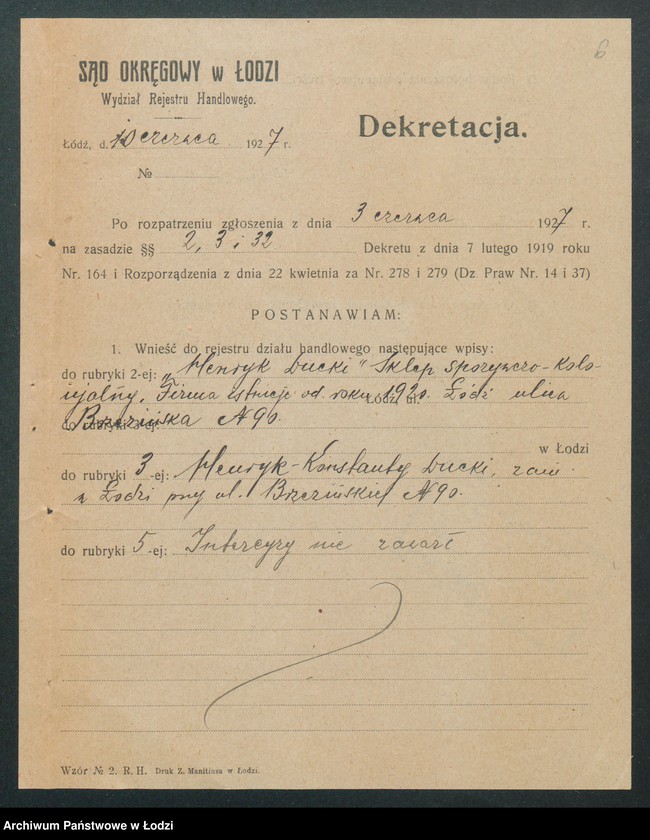 6
SĄD OKRĘGOWY w ŁODZI
Wydział Rejestru Handlowego.
Dekretacja.
Łódź, d. 10 czerwca 1927 r.
№
Po rozpatrzeniu zgłoszenia z dnia 3 czerwca 1927 r.
na zasadzie §§ 2, 3 i 32 Dekretu z dnia 7 lutego 1919 roku
Nr. 164 i Rozporządzenia z dnia 22 kwietnia za Nr. 278 i 279 (Dz. Praw Nr. 14 i 37)
POSTANAWIAM:
1. Wnieść do rejestru działu handlowego następujące wpisy:
do rubryki 2-ej: „Henryk Ducki" Sklep spożywczo-kolo-
njalny. Firma istnieje od roku 1920. Łódź ulica
Łódź ul.
Brzezińska N 90.
do rubryki 3-ej:
w Łodzi
do rubryki 3-ej: Henryk-Konstanty Ducki, zam.
w Łodzi przy ul. Brzezińskiej N 90.
do rubryki 5-ej: Intercyzy nie zawarł
Wzór № 2. R. H. Druk Z. Manitiusa w Łodzi.
Archiwum Państwowe w Łodzi